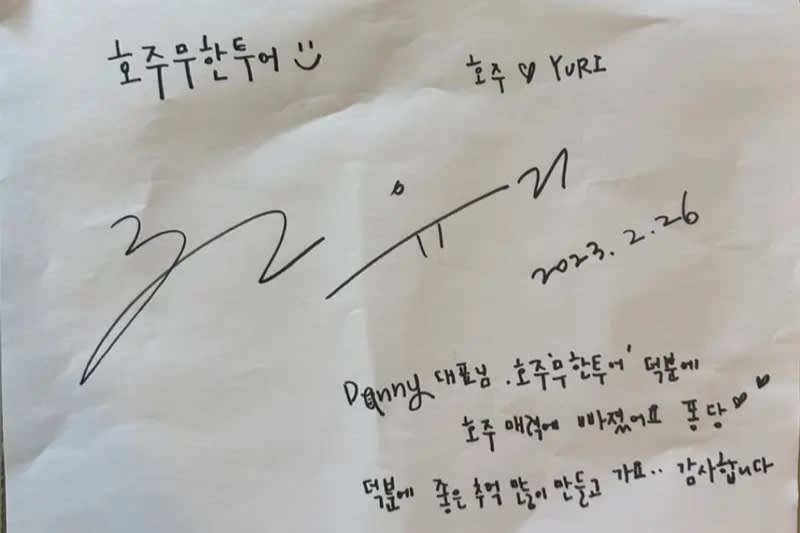 호주무한투어
호주 ♡ YURI
권유리
2023. 2. 26
Denny 대표님. 호주'무한투어' 덕분에
호주 매력에 빠졌어요 퐁당♥♥
덕분에 좋은 추억 많이 만들고 가요.. 감사합니다